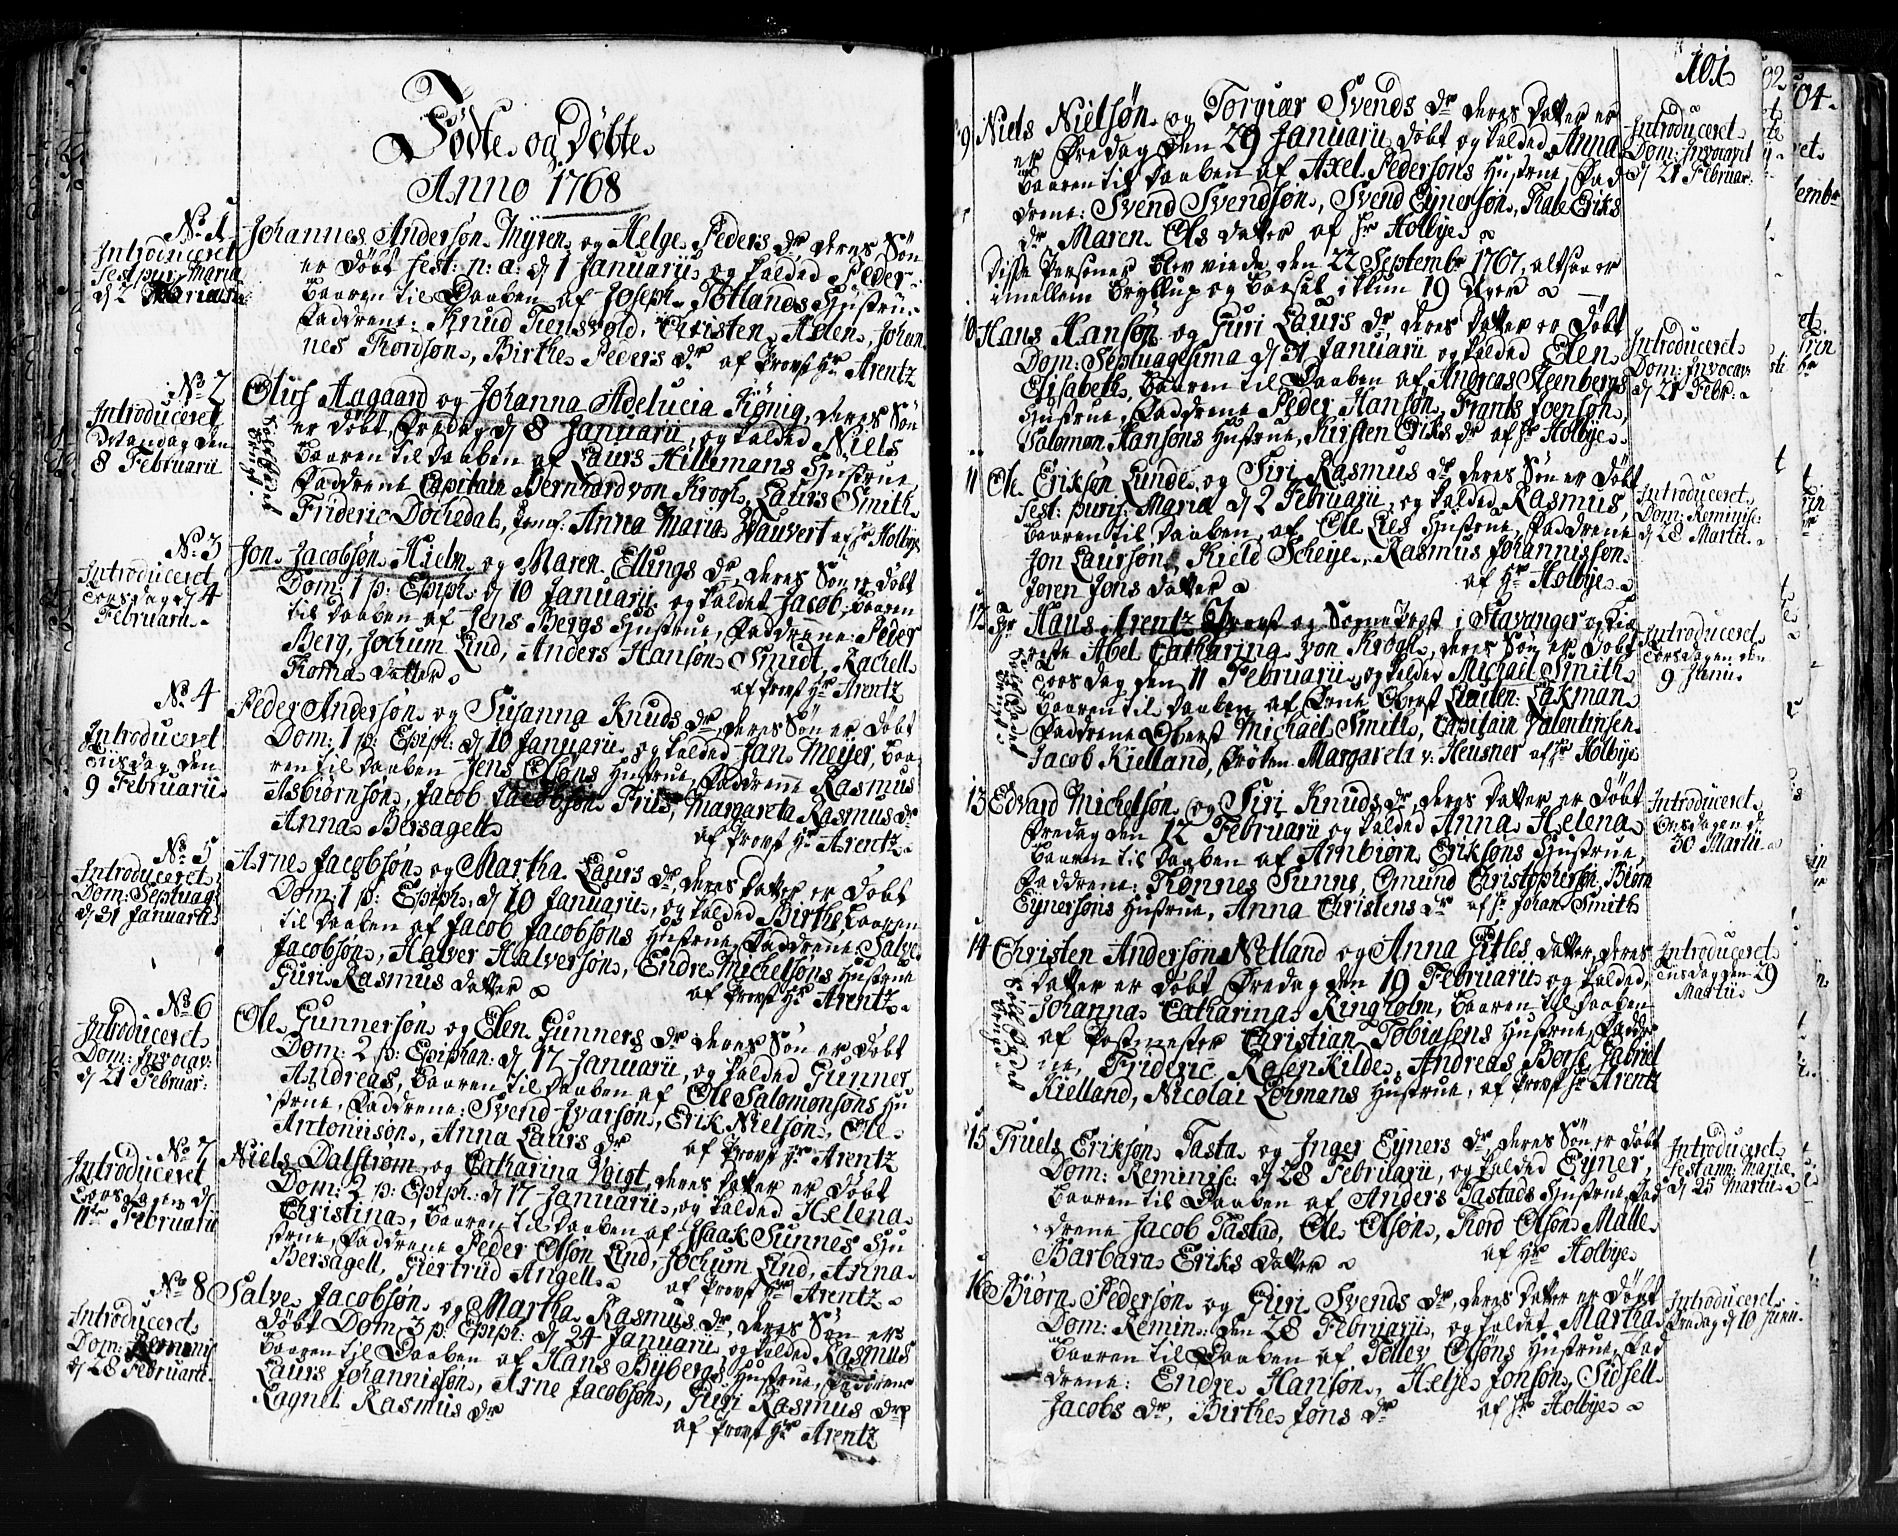 Fødte og Døbte
Anno 1768
No 1
Introduceret
fest pur: Maria
d 2 Februarii
Johannes Andersøn Myren og Helge Peders dr deres Søn
er døbt fest: n: a: d 1 Januarii og kalded Peder
baaren til Daaben af Joseph Totlands Hustrue
Faddrene: Knud Tiensvold, Christen Helen, Johan
nes Thordsøn, Birthe Peders dr af Provst Hr Arentz
No 2
Introduceret
Mandag den
8 Februarii
Oluf Aagaard og Johanna Adelucia König, deres Søn
er døbt, Fredag d 8 Januarii, og kalded Niels
baaren til daaben af Laurs Hillemans Hustrue
Faddrene Capitain Bernhard von Krogh, Laurs Smith
Frideric Dochedal, Jomf: Anna Maria Wauvert af Hr Holbye
No 3
Introduceret
Torsdag d 4
Februarii
Jon Jacobsøn Hielm og Maren Ellings dr, deres Søn er døbt
Dom: 1 p: Epiph: d 10 Januarii og kaldet Jacob, baaren
til daaben af Jens Bergs Hustrue, Faddrene: Peder
Berg, Jochum Lind, Anders Hansøn Smidt, Rachell
Thoma datter
af Provst Hr Arentz
No 4
Introduceret
Tiisdag den
9 Februarii
Peder Andersøn og Susanna Knuds dr, deres Søn er døbt
Dom: 1 p: Epiph: d 10 Januarii og kalded Jan Meyer, baa
ren til daaben Jens Olsøns Hustrue, Faddrene Rasmus
Asbiørnsøn, Jacob Jacobsøn Friis, Margareta Rasmus dr
Anna Bersagell
af Provst Hr Arentz
No 5
Introduceret
Dom: Septuag:
d 31 Januarii
Arne Jacobsøn og Martha Laurs dr, deres datter er døbt
Dom: 1 p: Epiph: d 10 Januarii, og kalded Birthe, baaren
til daaben af Jacob Jacobsøns Hustrue, Faddrene: Salve
Jacobsøn, Halver Halversøn, Endre Michelsøns Hustrue
Guri Rasmus datter
af Provst Hr Arentz
No 6
Introduceret
Dom: Invocav:
d 21 Februar:
Ole Gunnersøn og Elen Gunners dr deres Søn er døbt
Dom: 2 p: Epiphan: d 17 Januarii, og kaldet Gunner
Andreas, baaren til daaben af Ole Salomonsøns Hu
strue, Faddrene: Svend Ivarsøn, Erik Nielsøn, Ole
Antoniison, Anna Laurs dr
af Provst Hr Arentz
No 7
Introduceret
Torsdagen d
11te Februarii
Niels Dalstrøm og Catharina Voigt, deres datter er døbt
Dom: 2 p: Epiph: d 17 Januarii, og kaldet Helena
Christina, baaren til daaben af Isaak Sunnes Hu
strue, Faddrene Peder Olsøn Lind, Jochum Lind, Anna
Bersagell, Giertrud Angell
af Provst Hr Arentz
No 8
Introduceret
Dom: Reminis:
d 28 Februarii
Salve Jacobsøn og Martha Rasmus dr, deres Søn er
døbt Dom: 3 p: Epiph: d 24 Januarii og kaldet Rasmus
baaren til Daaben af Hans Byberg Hustrue, Faddrene
Laurs Johannissøn, Arne Jacobsøn, Guri Rasmus dr
Ragnel Rasmus dr
af Provst Hr Arentz
101
9 Niels Nielsøn og Torgiær Svends dr deres datter er
er Fredag den 29 Januarii døbt og kaldet Anna
baaren til daaben af Axel Pedersøns Hustrue, Fad
drene: Svend Svendsøn, Svend Ejnersøn, Kale Eriks
dr, Maren Ols datter af Hr Holbye
Disse Personer blev viede den 22 Septembr 1767, altsaa er
imellem bryllup og barsel ikkun 19 Uger
Introduceret
Dom: Invocavit
d 21 Februar:
10 Hans Hansøn og Guri Laurs dr, deres datter er døbt
Dom: Septuagesima d 31 Januarii og kaldet Elen
Elisabeth, baaren til daaben af Andreas Steenbergs
Hustrue, Faddrene Peder Hansøn, Frants Joensøn,
Salomon Hansøns Hustrue, Kirsten Eriks dr af Hr Holbye
Introduceret
Dom: Invocav:
d 21 Febr:
11 Ole Eriksøn Lunde og Siri Rasmus dr deres Søn er døbt
fest: purif: Mariæ d 2 Februarii, og kaldet Rasmus,
baaren til daaben af Ole Les Hustrue, Faddrene
Jon Laursøn, Kield Scheye, Rasmus Johannissøn
Joren Jons datter
af Hr Holbye
Introduceret
Dom: Reminisc:
d 28 Martii
12 Hr Hans Arentz Provst og SognePrest i Stavanger og Kiæ
reste Abel Catharina von Krogh, deres Søn er døbt
Torsdag den 11 Februarii, og kaldet Michael Smith
baaren til daaben af Frue Oberst Leuten: Lakman
Faddrene Oberst Michael Smith, Capitain Valentinsen
Jacob Kielland, Frøken Margareta v: Heusner af Hr Holbye
Introduceret
Torsdagen den
9 Junii
13 Edvard Michelsøn og Siri Knuds dr, deres datter er døbt
Fredag den 12 Februarii og kaldet Anna Helena
baaren til daaben af Arnbiørn Eriksøns Hustrue,
Faddrene: Thønnes Sunne, Omund Christophersøn, Biørn
Ejnersøns Hustrue, Anna Christens dr af Hr Johan Smith
Introduceret
Onsdagen d
30 Martii
14 Christen Andersøn Netland og Anna Gitles datter, deres
datter er døbt Fredag den 19 Februarii og kaldet
Johanna Catharina Ringholm, baaren til daaben
af Postmester Christian Tobiasens Hustrue, Faddre
ne, Frideric Rosenkilde, Andreas Borse, Gabriel
Kielland, Nicolai Lormans Hustrue, af Provst Hr Arentz
Introduceret
Tiisdagen 29
Martii
15 Truels Eriksøn Tasta og Inger Ejners dr, deres Søn er døbt
Dom: Reminisc: d 28 Februarii, og kaldet Ejner,
baaren til Daaben af Anders Tastads Hustrue, Fad
drene Jacob Tastad, Ole Olsøn, Thord Olsøn Malle
Barbara Eriks datter
af Hr Holbye
Introduceret
fest ann: Mariæ
d 25 Martii
16 Biørn Pedersøn og Guri Svends dr, deres datter er døbt
Dom: Remin: den 28 Februarii, og kaldet Martha
baaren til Daaben af Tollev Olsøns Hustrue, Fad
drene: Endre Hansøn, Helje Jonsøn, Sidsell
Jacobs dr, Birthe Jons dr
af Hr Holbye
Introduceret
Fredag d 10 Junii
02
04